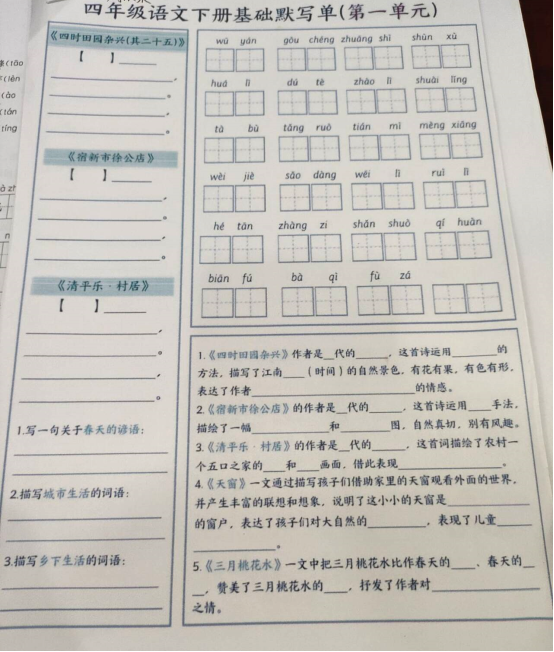 四年级语文下册基础默写单(第一单元)
《四时田园杂兴(其二十五)》
【 】______
____________，
____________。
____________，
____________。
《宿新市徐公店》
【 】______
____________，
____________。
____________，
____________。
《清平乐·村居》
【 】______
____________，
____________。
____________，
____________。
1.写一句关于春天的谚语：
2.描写城市生活的词语：
3.描写乡下生活的词语：
wū yán gōu chéng zhuāng shì shùn xù
huá lì dú tè zhào lì shuài lǐng
tà bù tǎng ruò tián mì mèng xiǎng
wèi jiè sǎo dàng wèi lì ruì lì
hé tān zhàng zi shǎn shuò qí huàn
biān fú bà qì fù zá
1.《四时田园杂兴》作者是__代的______，这首诗运用________的
方法，描写了江南____（时间）的自然景色，有花有果，有色有形，
表达了作者____________________的情感。
2.《宿新市徐公店》的作者是__代的______，这首诗运用____手法，
描绘了一幅__________和________图，自然真切，别有风趣。
3.《清平乐·村居》的作者是__代的______，这首词描绘了农村一
个五口之家的____和____画面，借此表现______________。
4.《天窗》一文通过描写孩子们借助家里的天窗观看外面的世界，
并产生丰富的联想和想象，说明了这小小的天窗是__________
的窗户，表达了孩子们对大自然的________，表现了儿童____
__________。
5.《三月桃花水》一文中把三月桃花水比作春天的____、春天的__
__，赞美了三月桃花水的____，抒发了作者对______________
之情。